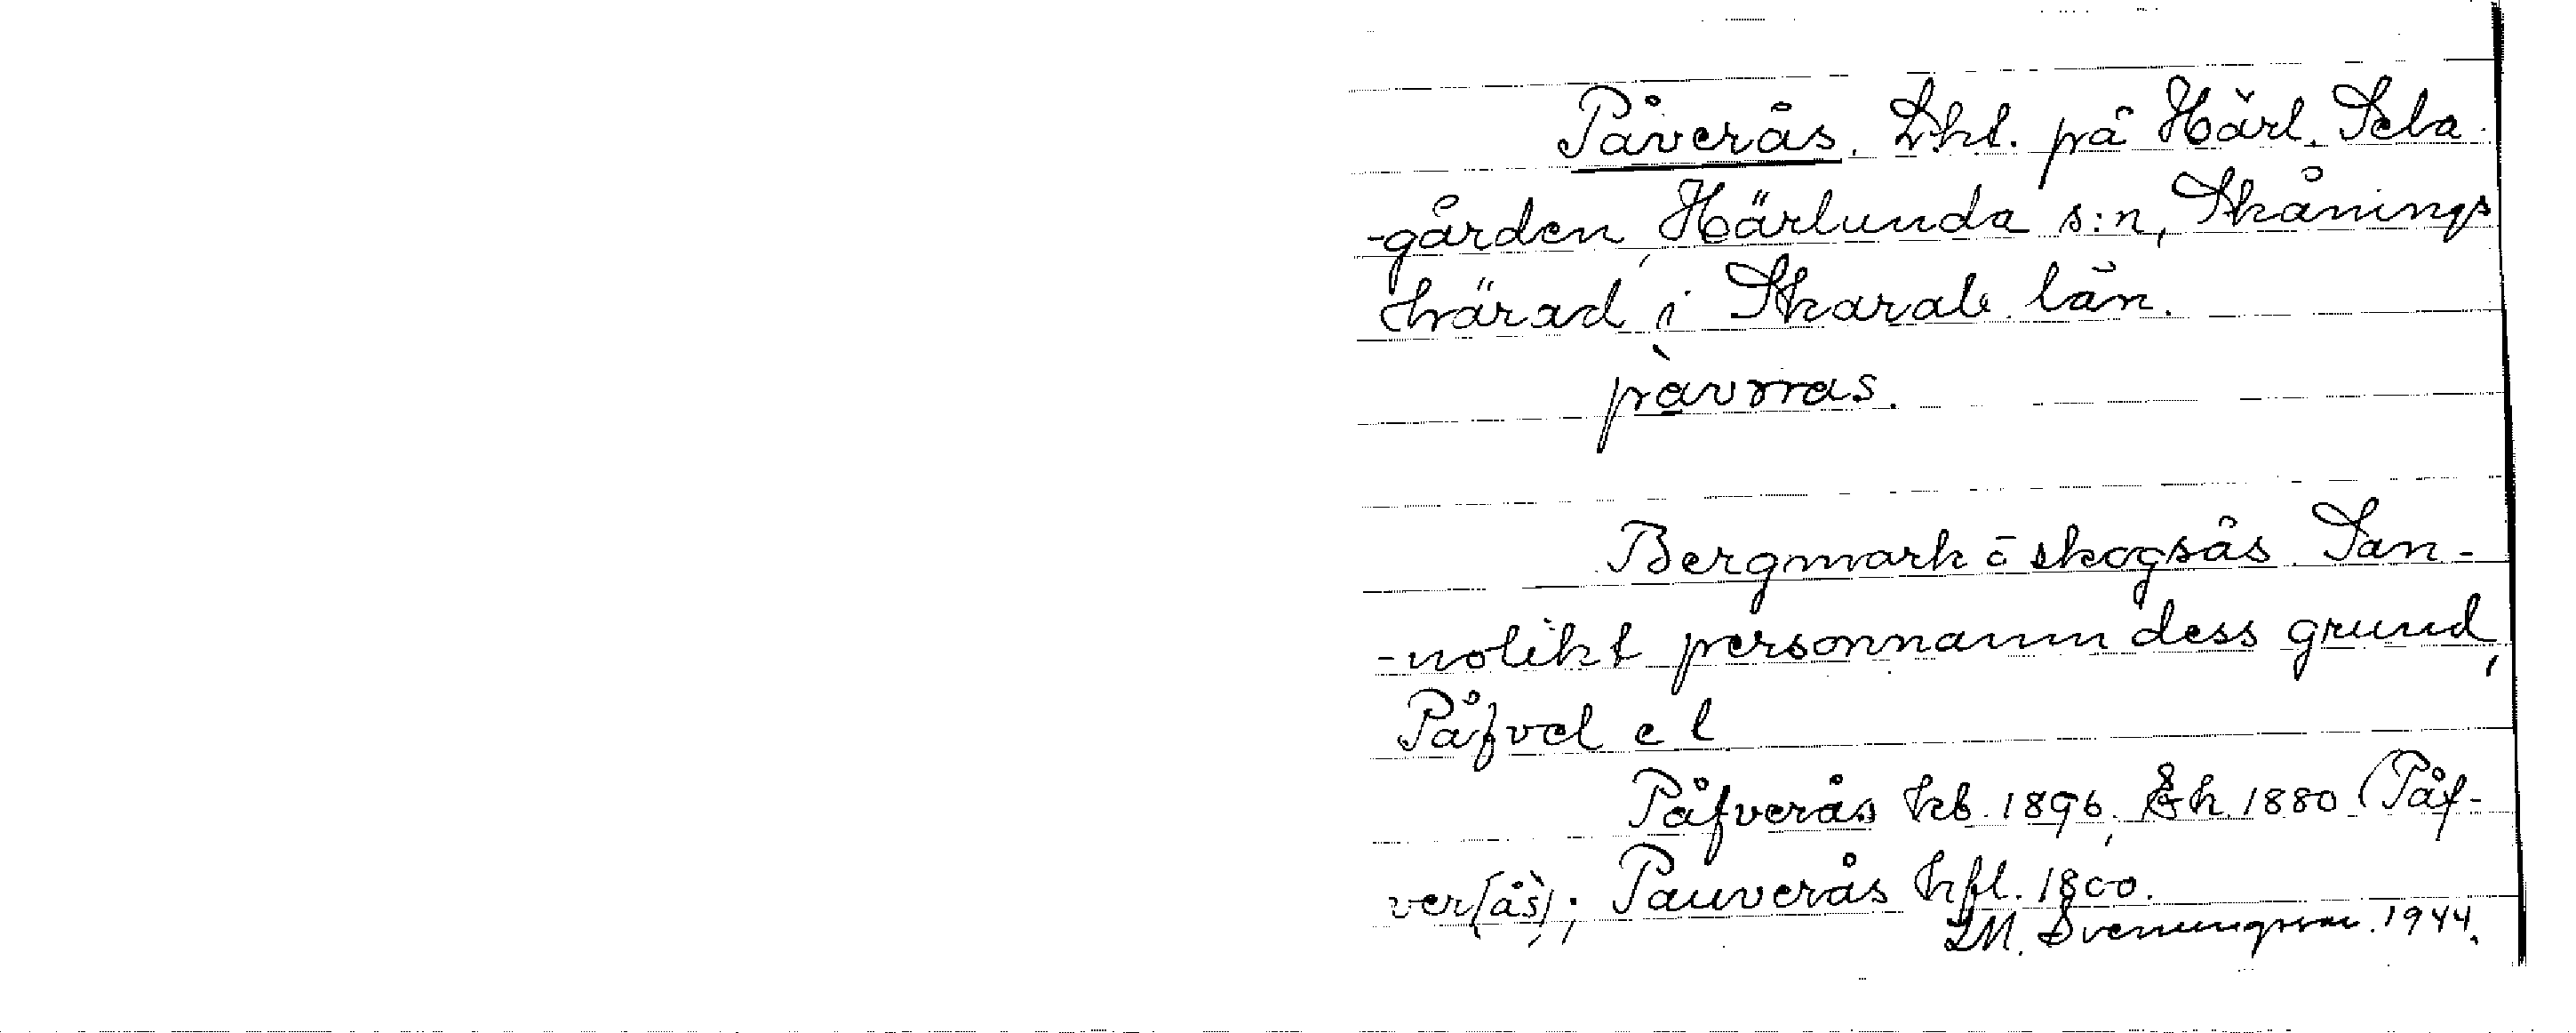 Påverås. Lht. på Härl. Seba-
-gården, Härlunda s:n, Skånings
härad i Skarab. län.
pàvrras.
Bergmark o skogsås. San-
-nolikt personnamn dess grund,
Påfvel e l
Påfverås kb. 1896, Ek. 1880 (Påf-
ver(ås); Pauverås hfl. 1800.
LM. Svenungsson 1944.